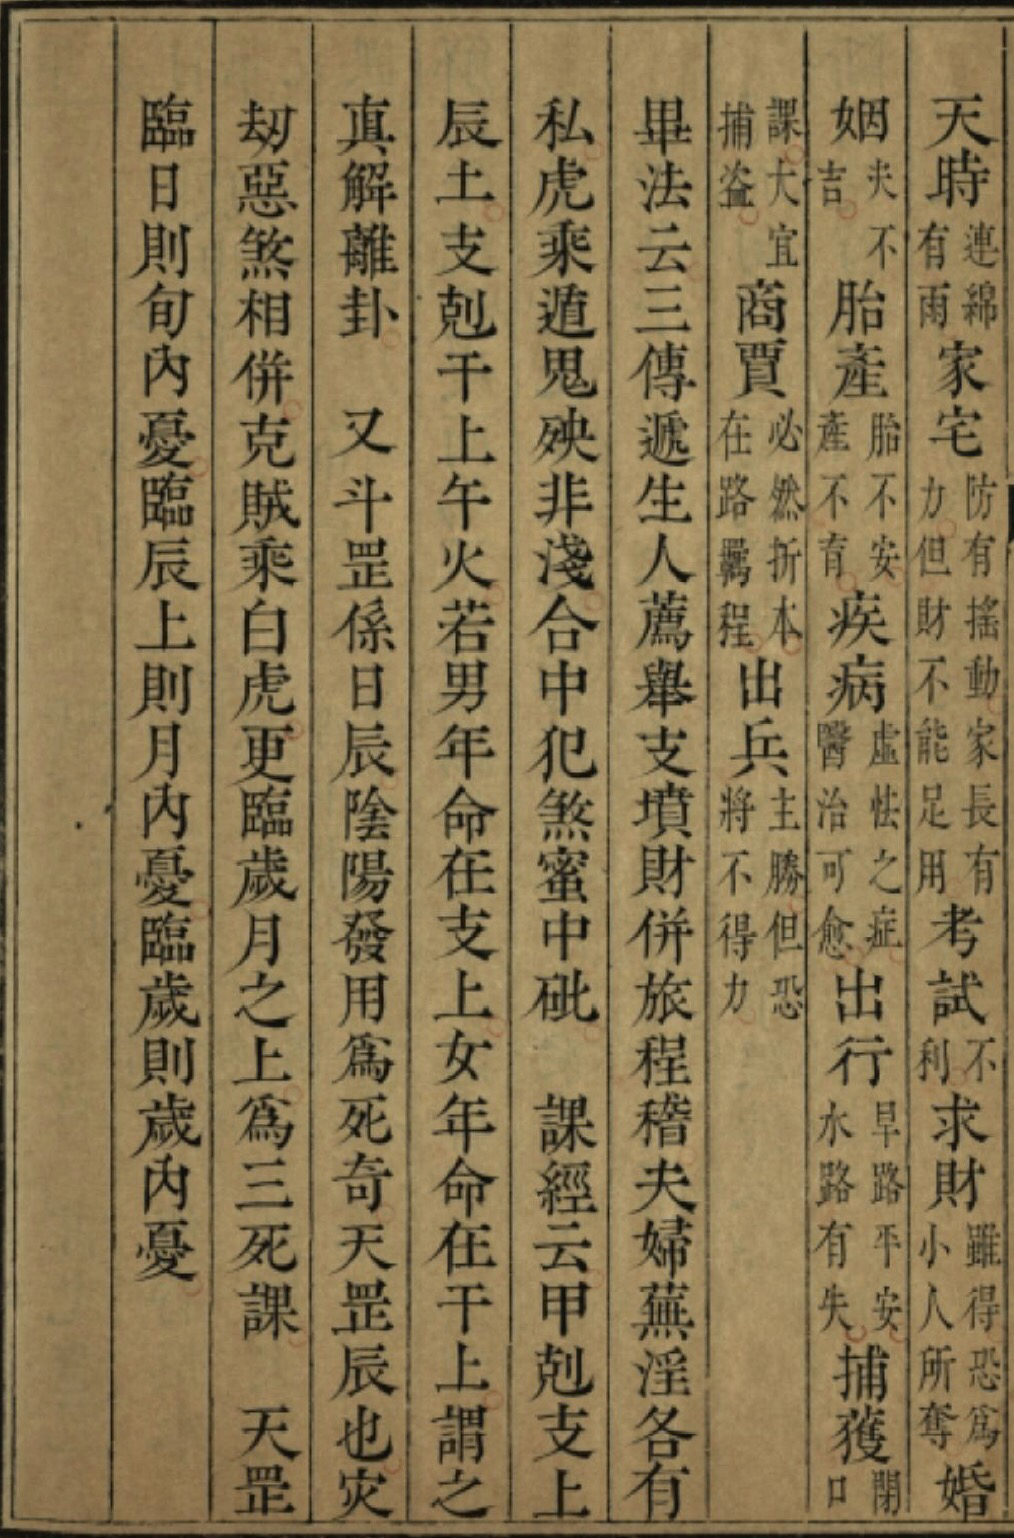 天時連綿有雨家宅防有搖動家長有力但財不能足用考試不利求財雖得恐爲小人所奪婚
姻夫不吉胎產胎不安產不育疾病虛怯之症醫治可愈出行旱路平安水路有失捕獲閉口
課大宜捕盜商賈必然折本在路羈程出兵主勝但恐將不得力
畢法云三傳遞生人薦舉支墳財併旅程稽夫婦蕪淫各有
私虎乘遁鬼殃非淺合中犯煞蜜中砒　課經云甲剋支上
辰土支剋干上午火若男年命在支上女年命在干上謂之
真解離卦　又斗罡係日辰陰陽發用爲死奇天罡辰也灾
劫惡煞相併克賊乘白虎更臨歲月之上爲三死課　天罡
臨日則旬內憂臨辰上則月內憂臨歲則歲內憂